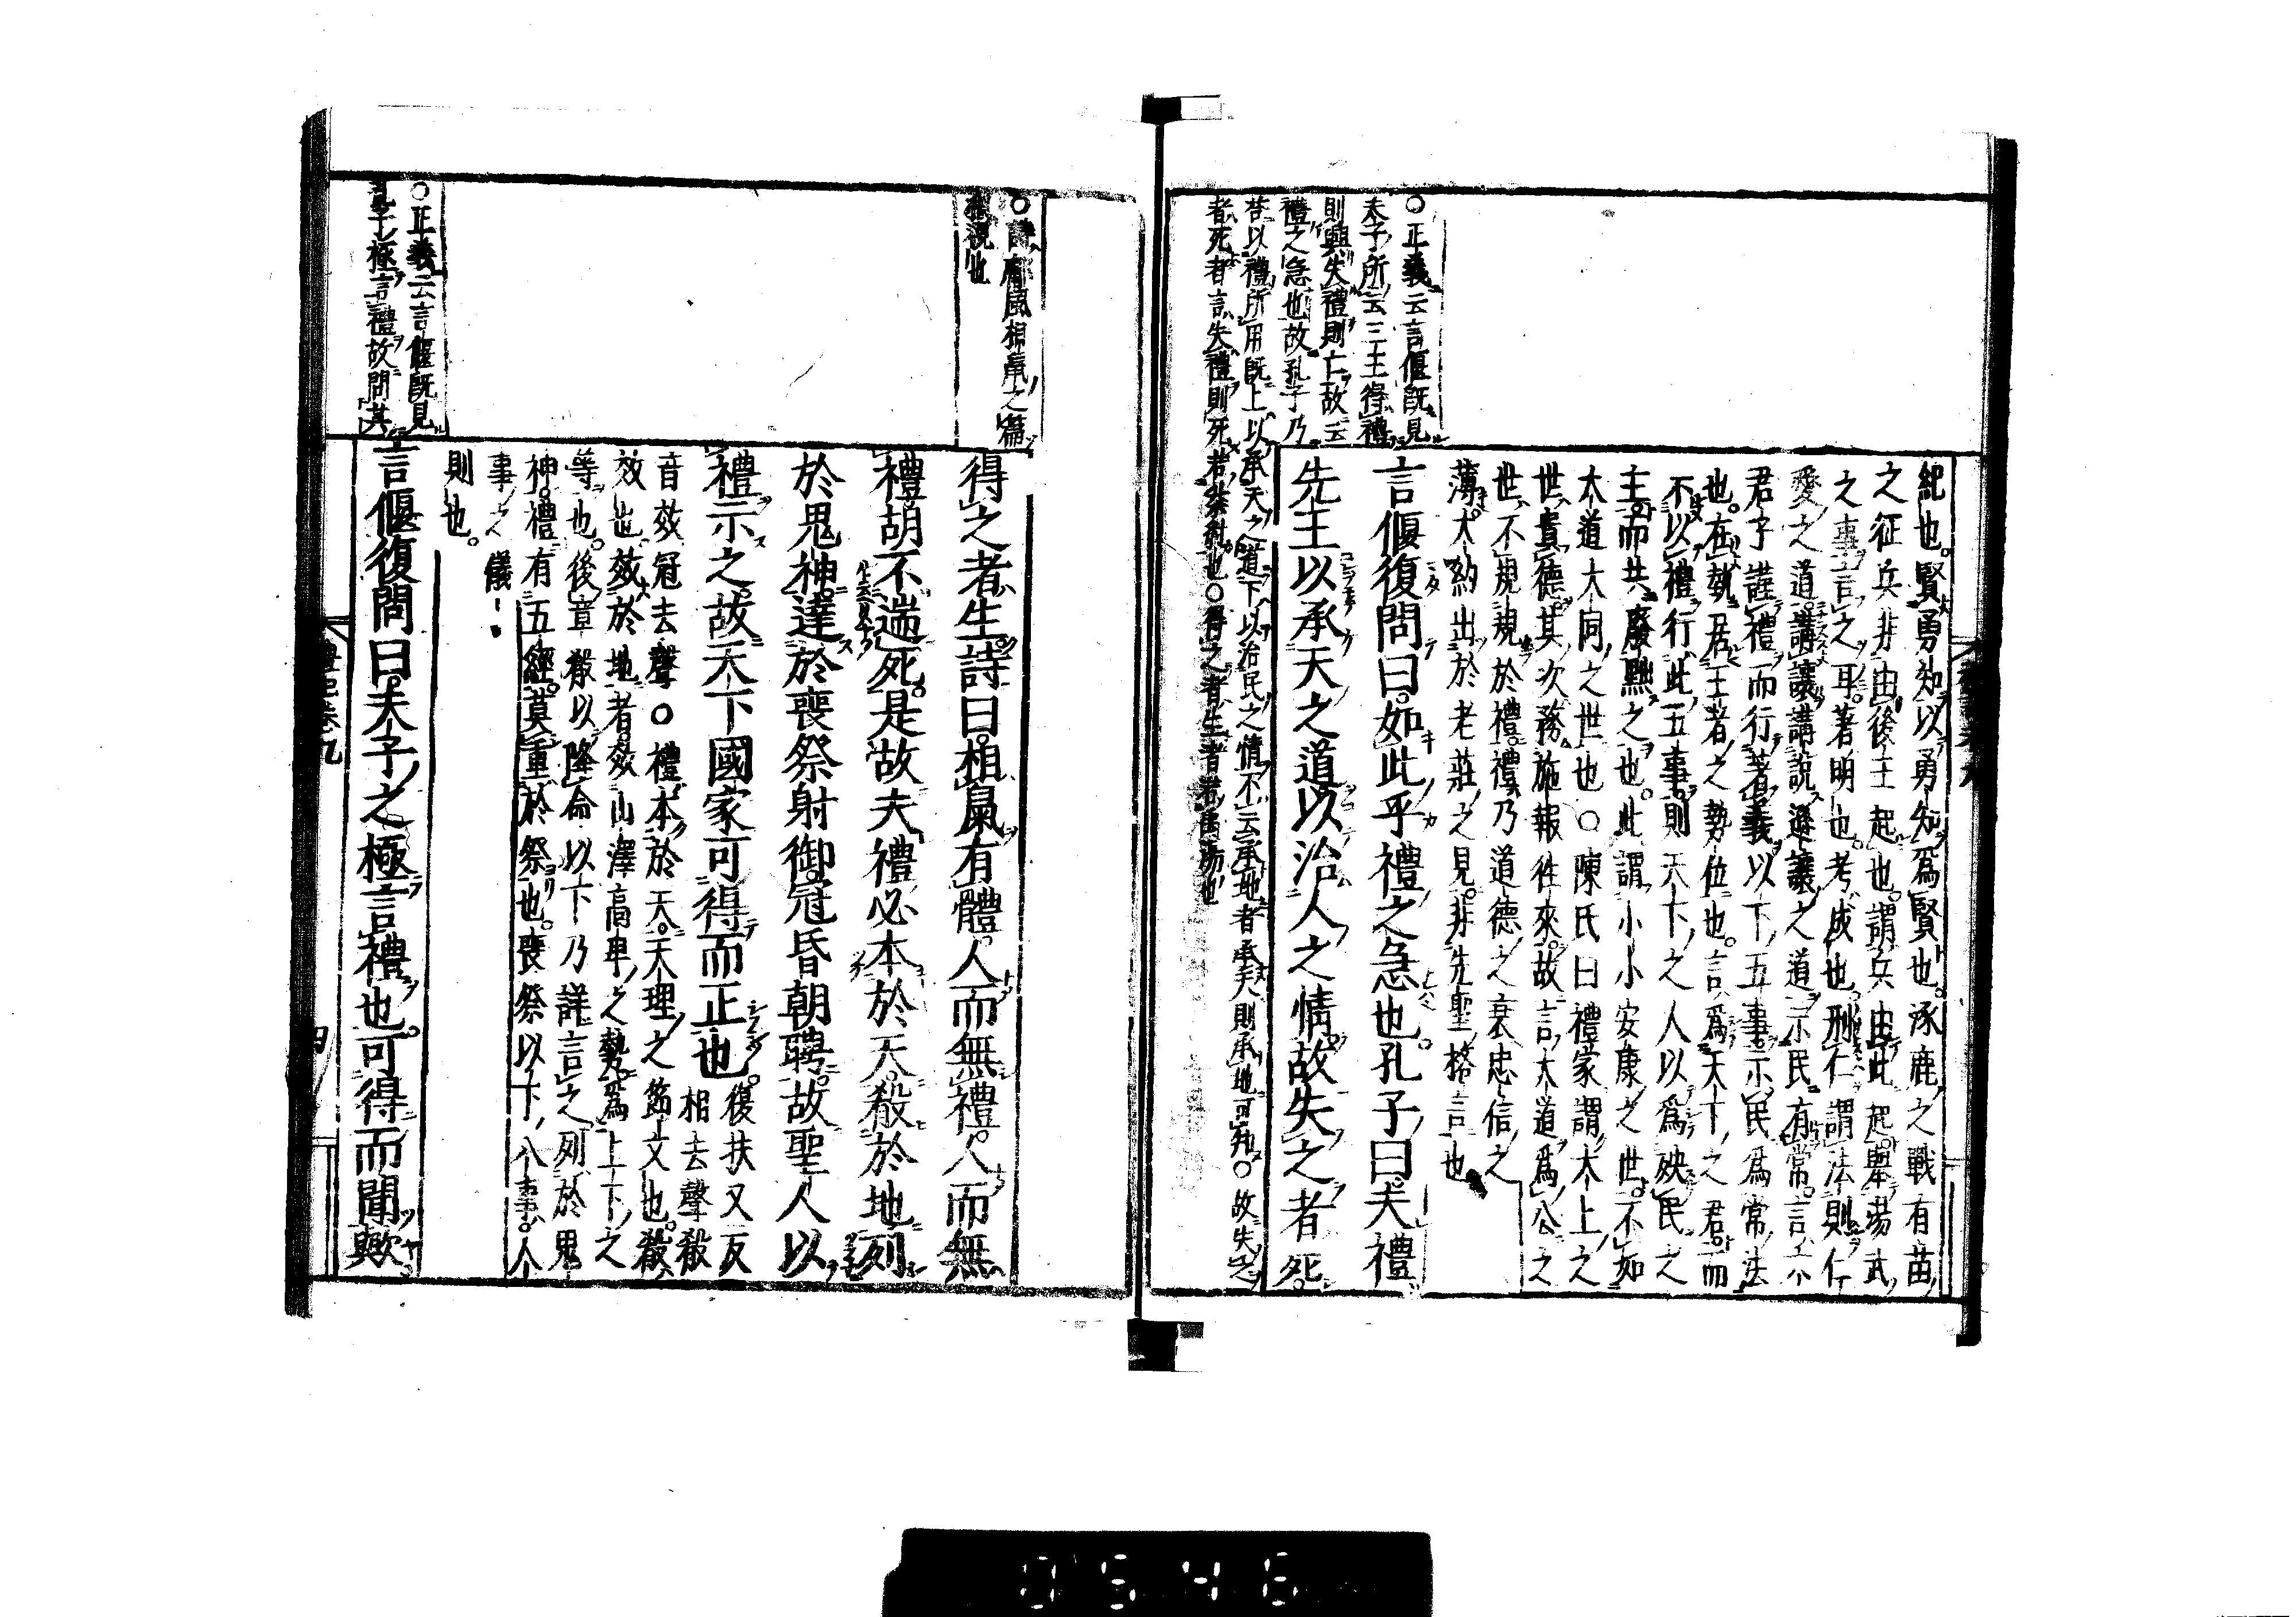 紀也。賢勇知以勇知爲賢也。涿鹿之戰有苗
之征兵非由後王起也。謂兵由此起擧湯武
之事言之耳。著明也。考成也。刑仁謂法則仁
愛之道。講讓講說遜讓之道。示民有常。言上下
君子謹禮而行著義以下五事示民爲常法
也。在埶居王者之勢位也。言爲天下之君而
不以禮行此五事則天下之人以爲殃民之
主而共廢黜之也。此謂小小安康之世。不如
大道大同之世也〇陳氏曰禮家謂太上之
世貴德其次務施報徃來故言大道爲公之
世不規規於禮禮乃道德之衰忠信之
薄大約出於老莊之見非先聖格言也
〇正義云言偃旣見
夫子所云三王得禮
則興失禮則亡故云
禮之急也故孔子乃
荅以禮所用旣上以承天之道下以治民之情不云承地者承天則承地可知〇故失之
者死者言失禮則死若桀紂也〇得之者生者若禹湯也
言偃復問曰如此乎禮之急也孔子曰夫禮
先王以承天之道以治人之情故失之者死
〇詩鄘風相鼠之篇
相視也
得之者生詩曰相鼠有體人而無禮人而無
禮胡不遄死是故夫禮必本於天殽於地列
於鬼神達於喪祭射御冠昏朝聘故聖人以
禮示之故天下國家可得而正也 復扶又反
相去聲殽
音效冠去聲〇禮本於天天理之節文也。殽
效也效於地者效山澤高卑之勢爲上下之
等也。後章殽以降命以下乃詳言之列於鬼
神禮有五經莫重於祭也。喪祭以下八事人
事之儀
則也。
〇正義云言偃旣見
孔子極言禮故問其
言偃復問曰夫子之極言禮也可得而聞歟
禮記卷九
四
0546